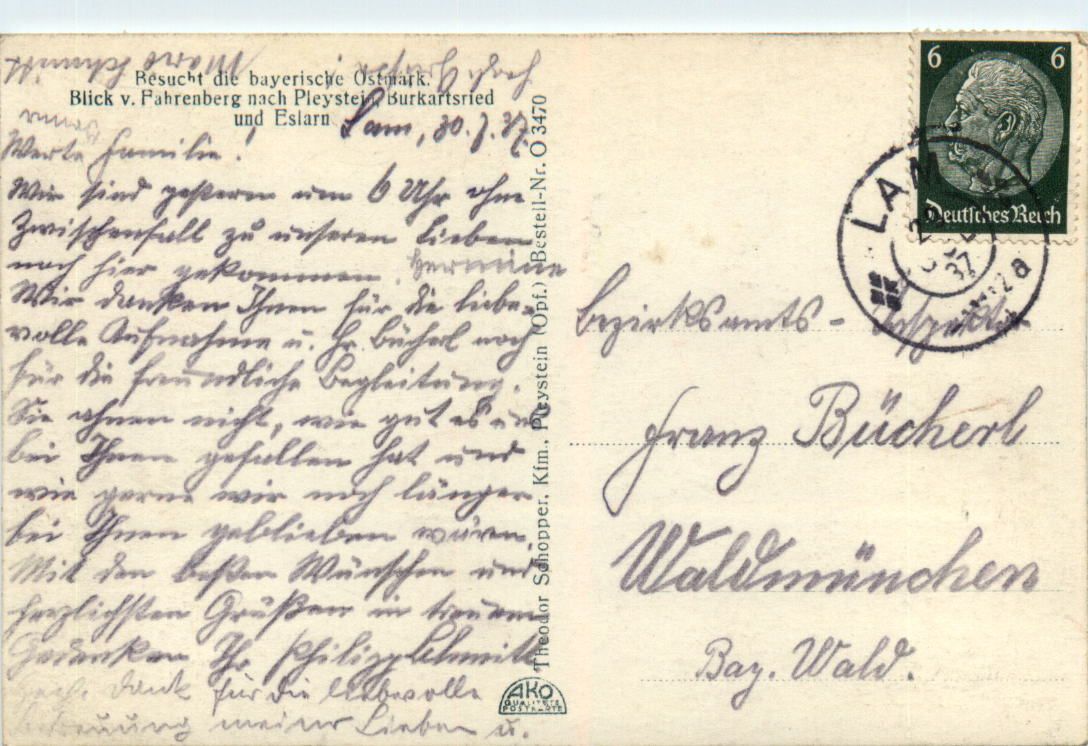 Besucht die bayerische Ostmark.
Blick v. Fahrenberg nach Pleystein, Burkartsried
und Eslarn
Lam, 30.7.37.
Werte Familie!
Wir sind gestern um 6 Uhr ohne
Zwischenfall zu unseren Lieben
nach hier gekommen.
Wir danken Ihnen für die liebe-
volle Aufnahme u. Hr. Bücherl noch
für die freundliche Begleitung.
Sie ahnen nicht, wie gut es uns
bei Ihnen gefallen hat und
wie gerne wir noch länger
bei Ihnen geblieben wären.
Mit den besten Wünschen und
herzlichsten Grüßen in treuem
Gedenken Ihr Philipp Schmitt
Dank für die liebevolle
meiner Lieben u.
Marg Schmitt
Hermine
Theodor Schopper, Kfm., Pleystein (Opf.) Bestell-Nr. O 3470
AKO
QUALITÄTS
POSTKARTE
6 6
Deutsches Reich
LAM
37
Bezirksamts-Inspektor
Franz Bücherl
Waldmünchen
Bay. Wald.